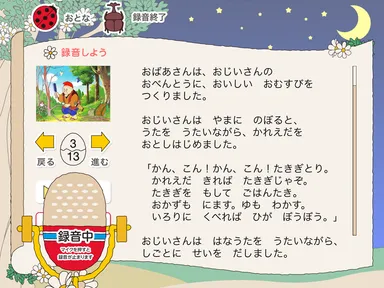 おとな
録音終了
録音しよう
3
13
戻る
進む
録音中
マイクを押すと
録音が止まります
おばあさんは、おじいさんの
おべんとうに、おいしい　おむすびを
つくりました。
おじいさんは　やまに　のぼると、
うたを　うたいながら、かれえだを
おとしはじめました。
「かん、こん！かん、こん！たきぎとり。
かれえだ　きれば　たきぎじゃぞ。
たきぎを　もして　ごはんたき。
おかずも　にます。ゆも　わかす。
いろりに　くべれば　ひが　ぼうぼう。」
おじいさんは　はなうたを　うたいながら、
しごとに　せいを　だしました。